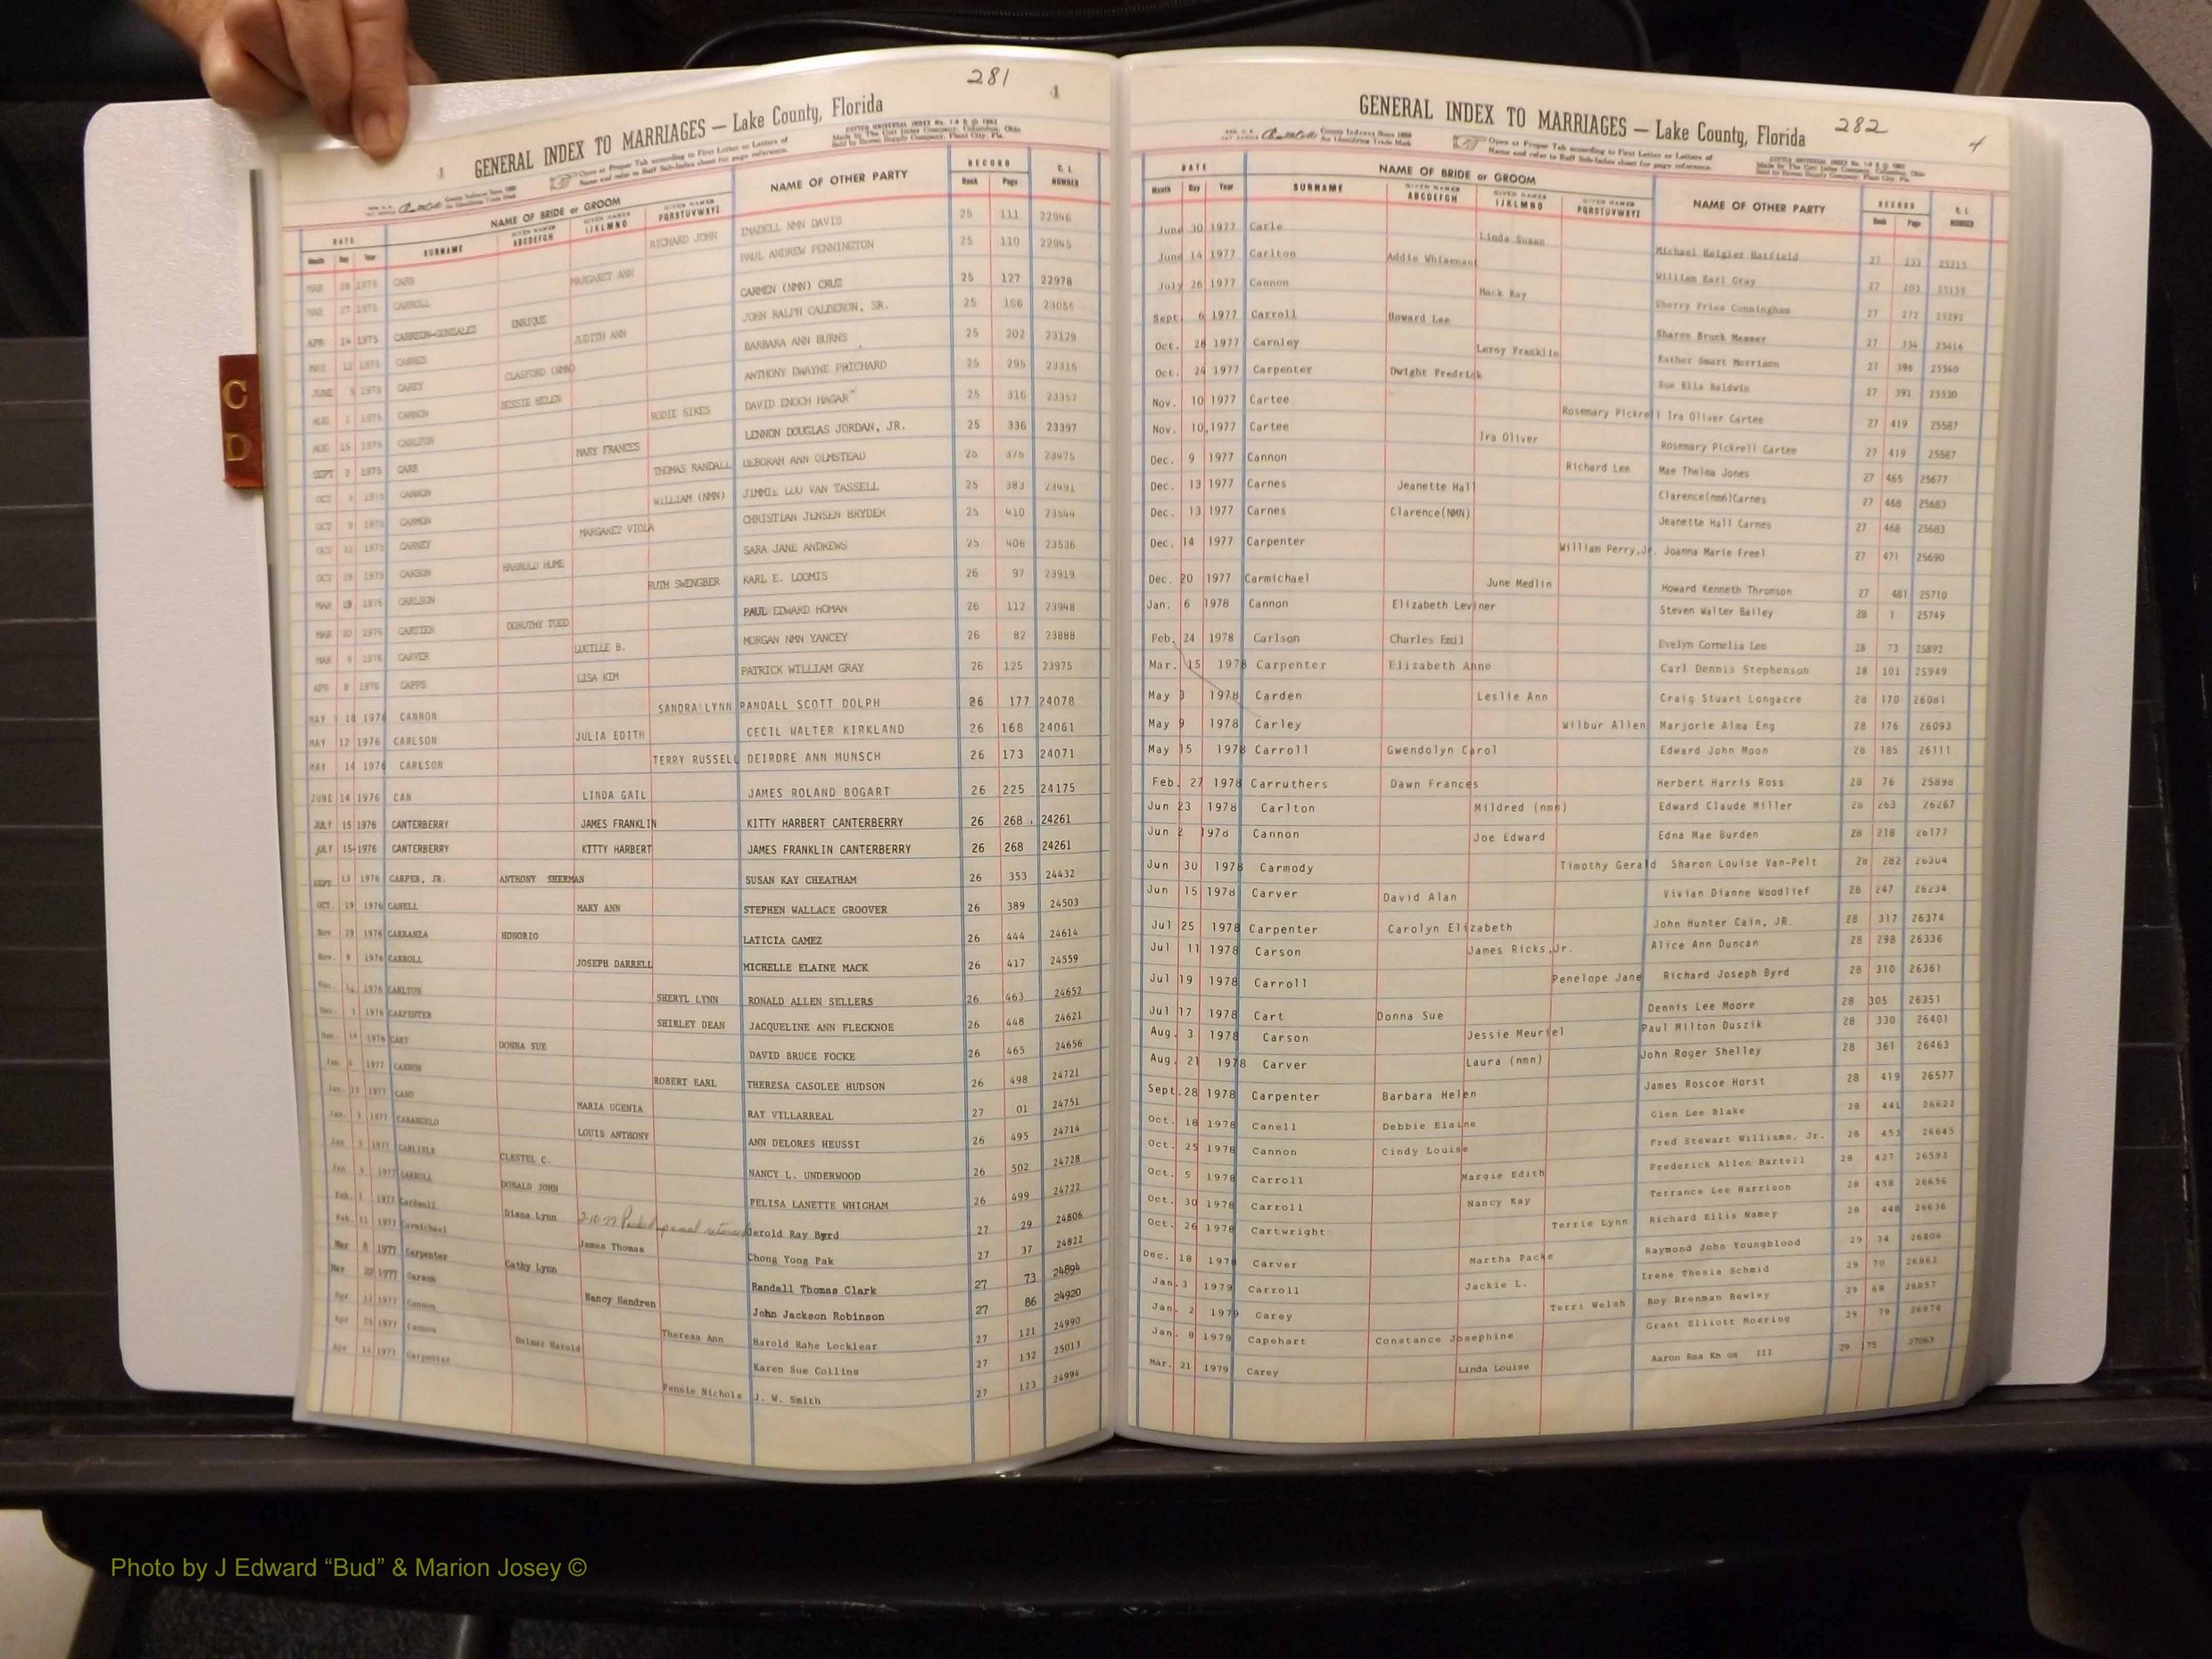 281
1
GENERAL INDEX TO MARRIAGES — Lake County, Florida
Open at Proper Tab according to First Letter or Letters of
Name and refer to Buff Sub-Index sheet for page reference.
DATE NAME OF BRIDE or GROOM NAME OF OTHER PARTY RECORD C. I.
Month Day Year SURNAME GIVEN NAMES ABCDEFGH GIVEN NAMES IJKLMNO GIVEN NAMES PQRSTUVWXYZ Book Page NUMBER
MAR 1975 CARR RICHARD JOHN IMADELL NMN DAVIS 25 111 22946
MAR 27 1975 CARROLL MARGARET ANN PAUL ANDREW PENNINGTON 25 110 22945
APR 14 1975 CARREON-GONZALES ENRIQUE CARMEN (NMN) CRUZ 25 127 22978
MAY 12 1975 CARNES JUDITH ANN JOHN RALPH CALDERON, SR. 25 166 23056
JUNE 5 1975 CAREY CLASFORD (NMN) BARBARA ANN BURNS 25 202 23129
AUG 1 1975 CANNON BESSIE HELEN ANTHONY DWAYNE PRICHARD 25 295 23315
AUG 15 1975 CARLTON RODIE SIKES DAVID ENOCH HAGAR 25 316 23357
SEPT 2 1975 CARR MARY FRANCES LENNON DOUGLAS JORDAN, JR. 25 336 23397
OCT 1975 CANNON THOMAS RANDALL DEBORAH ANN OLMSTEAD 25 375 23475
OCT 9 1975 CARMON WILLIAM (NMN) JIMMIE LOU VAN TASSELL 25 383 23491
OCT 31 1975 CARNEY MARGARET VIOLA CHRISTIAN JENSEN BRYDER 25 410 23544
OCT 28 1975 CARSON HARROLD HUME SARA JANE ANDREWS 25 406 23536
MAR 19 1976 CARLSON RUTH SWENGBER KARL E. LOOMIS 26 97 23919
MAR 30 1976 CARTIER DOROTHY TODD PAUL EDWARD HOMAN 26 112 23948
MAR 9 1976 CARVER LUCILLE B. MORGAN NMN YANCEY 26 82 23888
APR 8 1976 CAPPS LISA KIM PATRICK WILLIAM GRAY 26 125 23975
MAY 18 1976 CANNON SANDRA LYNN RANDALL SCOTT DOLPH 26 177 24078
MAY 12 1976 CARLSON JULIA EDITH CECIL WALTER KIRKLAND 26 168 24061
MAY 14 1976 CARLSON TERRY RUSSELL DEIRDRE ANN MUNSCH 26 173 24071
JUNE 14 1976 CAN LINDA GAIL JAMES ROLAND BOGART 26 225 24175
JULY 15 1976 CANTERBERRY JAMES FRANKLIN KITTY HARBERT CANTERBERRY 26 268 24261
JULY 15 1976 CANTERBERRY KITTY HARBERT JAMES FRANKLIN CANTERBERRY 26 268 24261
SEPT 13 1976 CARPER, JR. ANTHONY SHERMAN SUSAN KAY CHEATHAM 26 353 24432
OCT. 19 1976 CANELL MARY ANN STEPHEN WALLACE GROOVER 26 389 24503
Nov 29 1976 CARRANZA HONORIO LATICIA GAMEZ 26 444 24614
Nov. 9 1976 CARROLL JOSEPH DARRELL MICHELLE ELAINE MACK 26 417 24559
Dec. 14 1976 CARLTON SHERYL LYNN RONALD ALLEN SELLERS 26 463 24652
Dec. 1 1976 CARPENTER SHIRLEY DEAN JACQUELINE ANN FLECKNOE 26 448 24621
Dec. 1976 CART DONNA SUE DAVID BRUCE FOCKE 26 465 24656
Jan 1977 CANNON ROBERT EARL THERESA CASOLEE HUDSON 26 498 24721
Jan. 1977 CANO MARIA UGENIA RAY VILLARREAL 27 01 24751
Jan. 1977 CARANGELO LOUIS ANTHONY ANN DELORES HEUSSI 26 495 24714
Jan 1977 CARLISLE CLESTEL C. NANCY L. UNDERWOOD 26 502 24728
Jan 1977 CARROLL DONALD JOHN FELISA LANETTE WHIGHAM 26 499 24722
Feb. 7 1977 Cardwell Diana Lynn Jerold Ray Byrd 27 29 24806
Feb. 11 1977 Carmichael James Thomas Chong Yong Pak 27 37 24822
Mar 8 1977 Carpenter Cathy Lynn Randall Thomas Clark 27 73 24894
Mar 22 1977 Carson Nancy Hendren John Jackson Robinson 27 86 24920
Apr 1977 Cannon Theresa Ann Harold Rahe Locklear 27 121 24990
Apr 1977 Cannon Delmar Harold Karen Sue Collins 27 132 25013
Apr 1977 Carpenter Pennie Nichols J. W. Smith 27 123 24994
C
D
282
4
GENERAL INDEX TO MARRIAGES — Lake County, Florida
Open at Proper Tab according to First Letter or Letters of
Name and refer to Buff Sub-Index sheet for page reference.
DATE NAME OF BRIDE or GROOM NAME OF OTHER PARTY RECORD C. I.
Month Day Year SURNAME GIVEN NAMES ABCDEFGH GIVEN NAMES IJKLMNO GIVEN NAMES PQRSTUVWXYZ Book Page NUMBER
June 30 1977 Carle Linda Susan Michael Haigler Hatfield 27 233 25215
June 14 1977 Carlton Addie Whisenant William Earl Gray 27 203 25155
July 26 1977 Cannon Mack Ray Sherry Fries Cunningham 27 272 25292
Sept. 6 1977 Carroll Howard Lee Sharon Brunk Masser 27 334 25416
Oct. 28 1977 Carnley Leroy Franklin Esther Smart Morrison 27 396 25540
Oct. 24 1977 Carpenter Dwight Fredrick Sue Elis Baldwin 27 391 25530
Nov. 10 1977 Cartee Rosemary Pickrell Ira Oliver Cartee 27 419 25587
Nov. 10,1977 Cartee Ira Oliver Rosemary Pickrell Cartee 27 419 25587
Dec. 9 1977 Cannon Richard Lee Mae Thelma Jones 27 465 25677
Dec. 13 1977 Carnes Jeanette Hall Clarence(nmn)Carnes 27 468 25683
Dec. 13 1977 Carnes Clarence(NMN) Jeanette Hall Carnes 27 468 25683
Dec. 14 1977 Carpenter William Perry,Jr. Joanna Marie Freel 27 471 25690
Dec. 20 1977 Carmichael June Medlin Howard Kenneth Thronson 27 481 25710
Jan. 6 1978 Cannon Elizabeth Leviner Steven Walter Bailey 28 1 25749
Feb. 24 1978 Carlson Charles Emil Evelyn Cornelia Lee 28 73 25892
Mar. 15 1978 Carpenter Elizabeth Anne Carl Dennis Stephenson 28 101 25949
May 3 1978 Carden Leslie Ann Craig Stuart Longacre 28 170 26081
May 9 1978 Carley Wilbur Allen Marjorie Alma Eng 28 176 26093
May 15 1978 Carroll Gwendolyn Carol Edward John Moon 28 185 26111
Feb. 27 1978 Carruthers Dawn Frances Herbert Harris Ross 28 76 25898
Jun 23 1978 Carlton Mildred (nmn) Edward Claude Miller 28 263 26267
Jun 2 1978 Cannon Joe Edward Edna Mae Burden 28 218 26177
Jun 30 1978 Carmody Timothy Gerald Sharon Louise Van-Pelt 28 282 26304
Jun 15 1978 Carver David Alan Vivian Dianne Woodlief 28 247 26234
Jul 25 1978 Carpenter Carolyn Elizabeth John Hunter Cain, JR. 28 317 26374
Jul 11 1978 Carson James Ricks,Jr. Alice Ann Duncan 28 298 26336
Jul 19 1978 Carroll Penelope Jane Richard Joseph Byrd 28 310 26361
Jul 17 1978 Cart Donna Sue Dennis Lee Moore 28 305 26351
Aug. 3 1978 Carson Jessie Meuriel Paul Milton Duszik 28 330 26401
Aug. 21 1978 Carver Laura (nmn) John Roger Shelley 28 361 26463
Sept.28 1978 Carpenter Barbara Helen James Roscoe Horst 28 419 26577
Oct. 18 1978 Canell Debbie Elaine Glen Lee Blake 28 441 26622
Oct. 25 1978 Cannon Cindy Louise Fred Stewart Williams, Jr. 28 453 26645
Oct. 5 1978 Carroll Margie Edith Frederick Allen Bartell 28 427 26593
Oct. 30 1978 Carroll Nancy Kay Terrance Lee Harrison 28 458 26656
Oct. 26 1978 Cartwright Terrie Lynn Richard Ellis Namey 28 448 26636
Dec. 18 1978 Carver Martha Packe Raymond John Youngblood 29 34 26806
Jan.3 1979 Carroll Jackie L. Irene Thenia Schmid 29 70 26862
Jan. 2 1979 Carey Terri Welsh Roy Brenman Bewley 29 68 26857
Jan. 8 1979 Capehart Constance Josephine Grant Elliott Moering 29 79 26878
Mar. 21 1979 Carey Linda Louise Aaron Rea Kn ox III 29 175 27063
Photo by J Edward “Bud” & Marion Josey ©